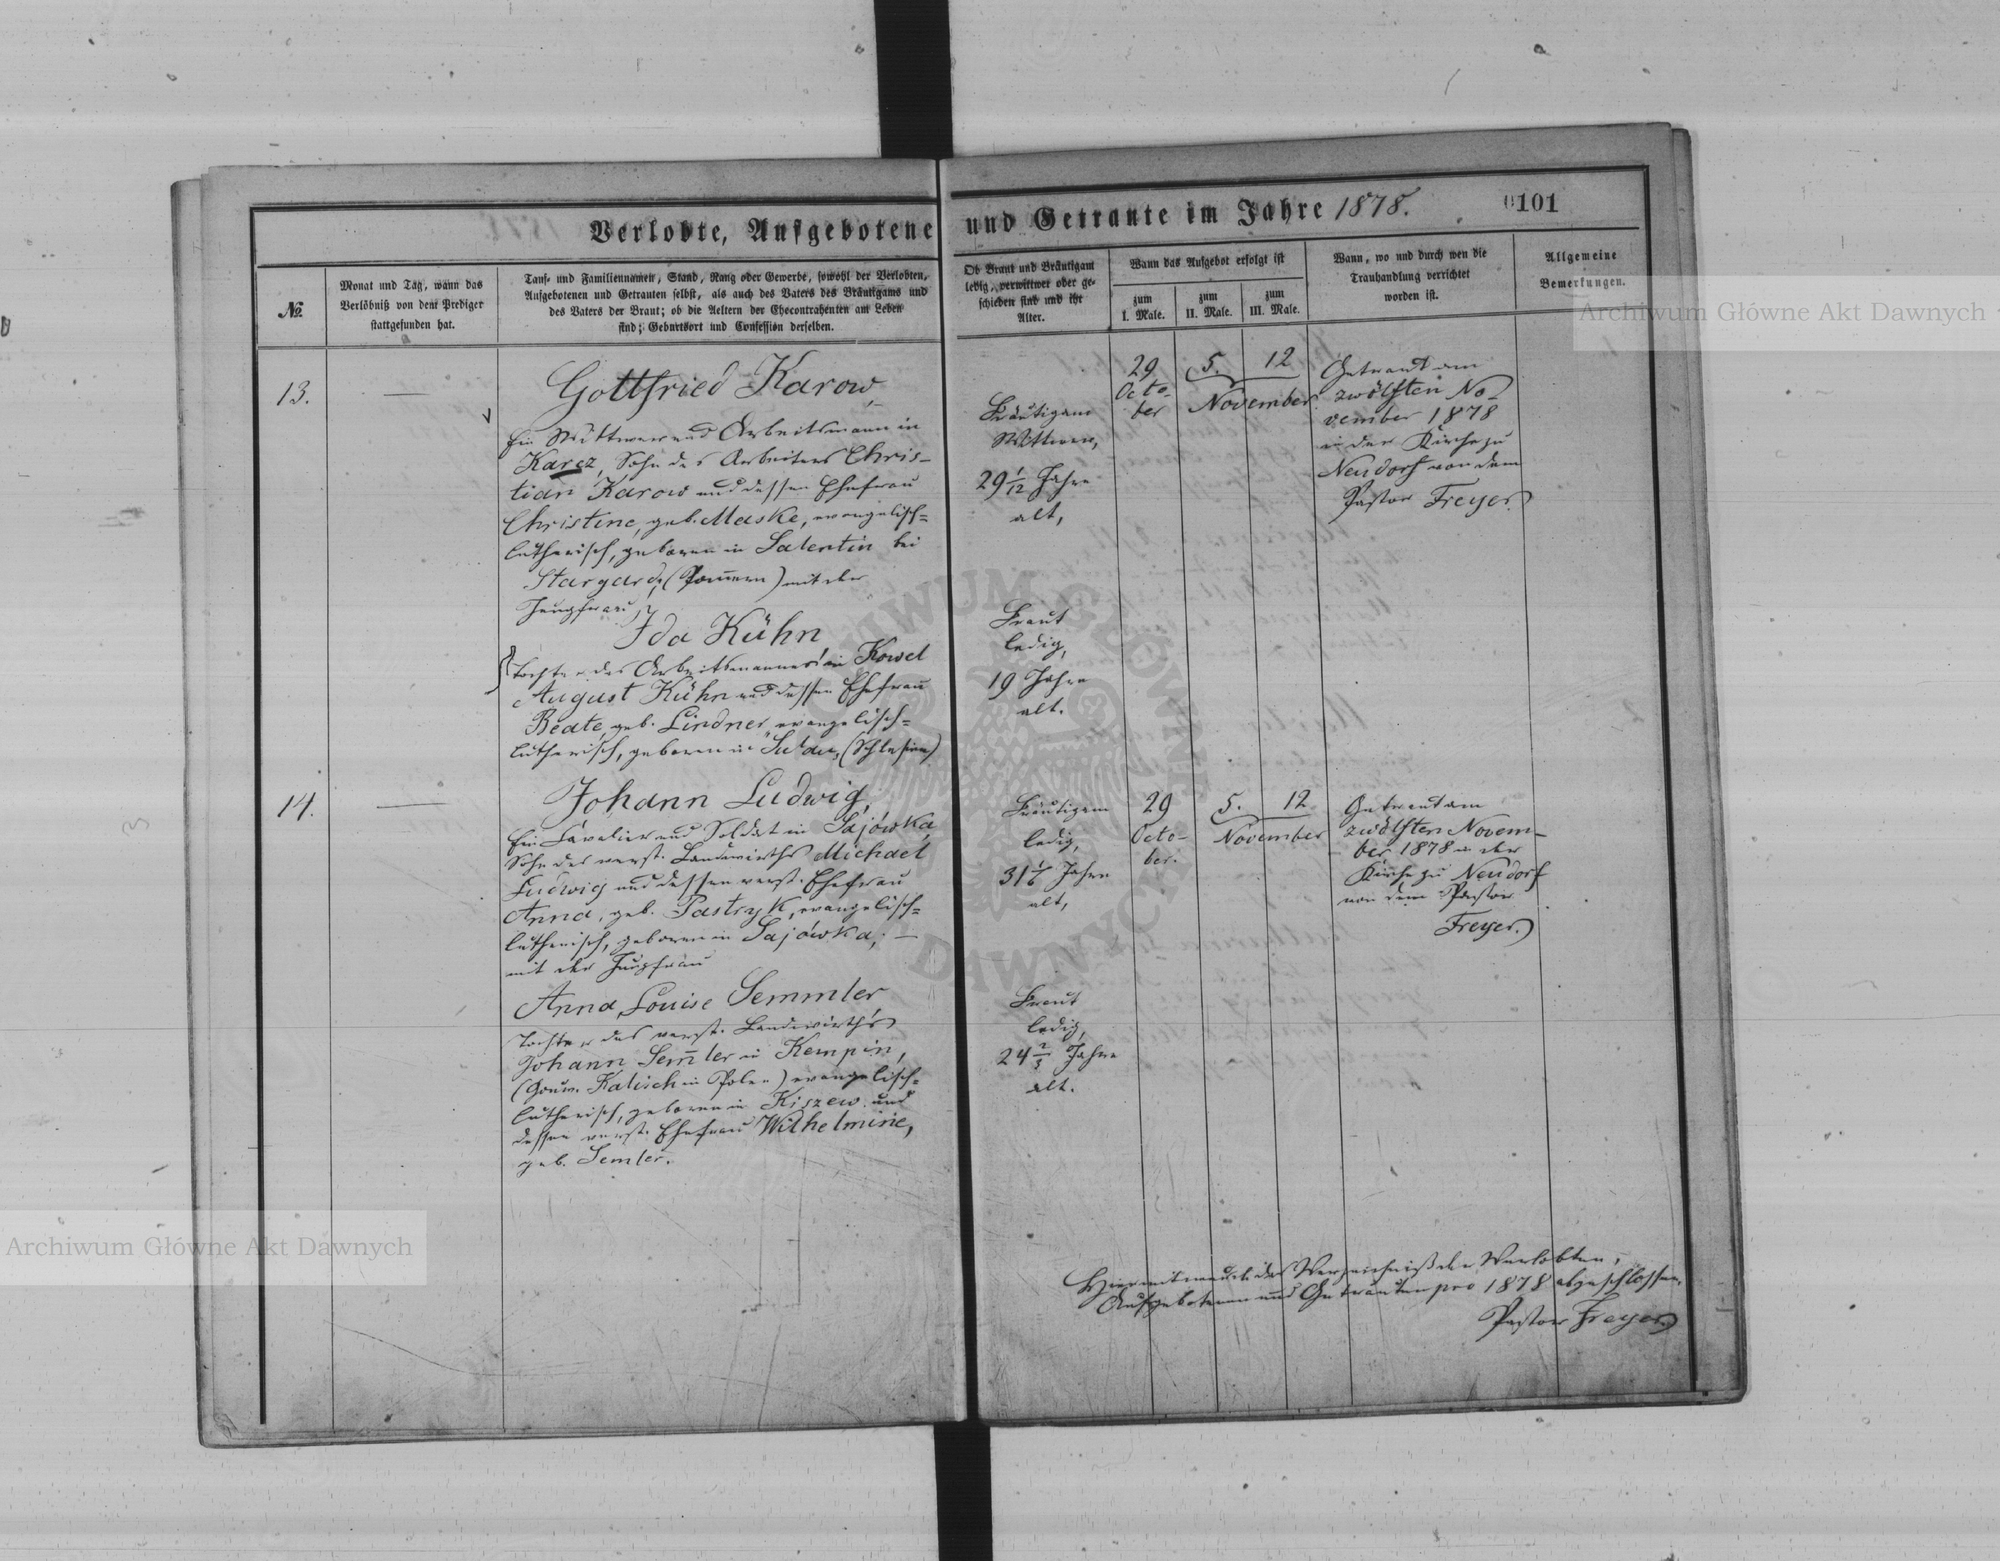 Verlobte, Aufgebotene und Getraute im Jahre 1878.
0101
№
Monat und Tag, wann das
Verlöbniß von dem Prediger
stattgefunden hat.
Tauf- und Familiennamen, Stand, Rang oder Gewerbe, sowohl der Verlobten,
Aufgebotenen und Getrauten selbst, als auch des Vaters des Bräutigams und
des Vaters der Braut; ob die Aeltern der Ehecontrahenten am Leben
sind; Geburtsort und Confession derselben.
Ob Braut und Bräutigam
ledig, verwittwet oder ge-
schieden sind und ihr
Alter.
Wann das Aufgebot erfolgt ist
zum
I. Male.
zum
II. Male.
zum
III. Male.
Wann, wo und durch wen die
Trauhandlung verrichtet
worden ist.
Allgemeine
Bemerkungen.
13.
Gottfried Karow,
Ein Wittwer und Arbeitsmann in
Karcz, Sohn des Arbeiters Chris-
tian Karow und dessen Ehefrau
Christine, geb. Maske, evangelisch-
lutherisch, geboren in Salentin bei
Stargard, (Pommern) mit der
Jungfrau
Ida Kühn
Tochter des Arbeitsmannes in Kowel
August Kühn und dessen Ehefrau
Beate, geb. Lindner, evangelisch-
lutherisch, geboren in (Schlesien)
Bräutigam
Wittwer,
29 1/12 Jahre
alt,
Braut
ledig,
19 Jahre
alt.
29
Octo-
ber
5. 12
November
Getraut am
zwölften No-
vember 1878
in der Kirche zu
Neudorf von dem
Pastor Freyer.
14.
Johann Ludwig,
Ein Cavalier und Soldat in Sajówka,
Sohn des verst. Landwirths Michael
Ludwig und dessen verst. Ehefrau
Anna, geb. Pastryk, evangelisch-
lutherisch, geboren in Sajówka; —
mit der Jungfrau
Anna Louise Semmler
Tochter des verst. Landwirths
Johann Sem̄ler in Kempin,
(Gouv. Kalisch in Polen) evangelisch-
lutherisch, geboren in Kiszew und
dessen verst. Ehefrau Wilhelmine,
geb. Semler.
Bräutigam
ledig,
31 1/6 Jahre
alt,
Braut
ledig,
24 2/3 Jahre
alt.
29
Octo-
ber.
5. 12
November
Getraut am
zwölften Novem-
ber 1878 in der
Kirche zu Neudorf
von dem Pastor
Freyer.
Hiermit wird das Verzeichniß der Verlobten,
Aufgebotenen und Getrauten pro 1878 abgeschlossen.
Pastor Freyer.
Archiwum Główne Akt Dawnych
Archiwum Główne Akt Dawnych
ARCHIWUM GŁÓWNE AKT DAWNYCH